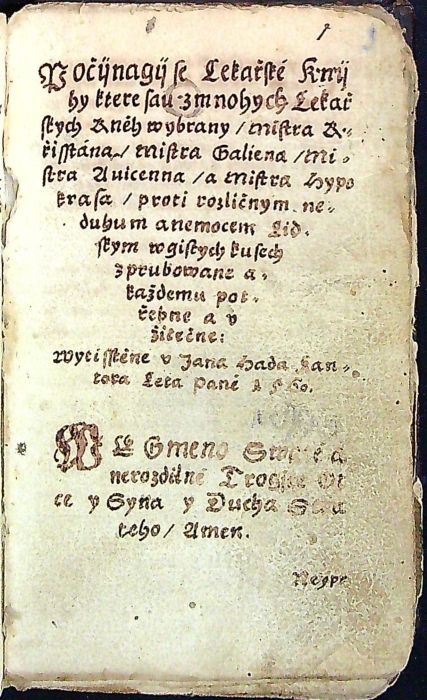 1
Počijnagij se Lekařské Knij
hy ktere sau z mnohych Lekař
skych Kněh wybrany / Mistra K-
řisstána / Mistra Galiena / Mi-
stra Auicenna / a Mistra Hypo
krasa / proti rozličnym ne-
duhum a nemocem Lid-
skym w gistych kusech
zprubowane a-
každemu pot-
řebne a v
žitečne:
Wytisstěne v Jana Hada Kan-
tora Leta Pané 1560.
We Gmeno Swaté a
nerozdilné Trogice Ot
ce y Syna y Ducha Swa
teho / Amen.
Neypr